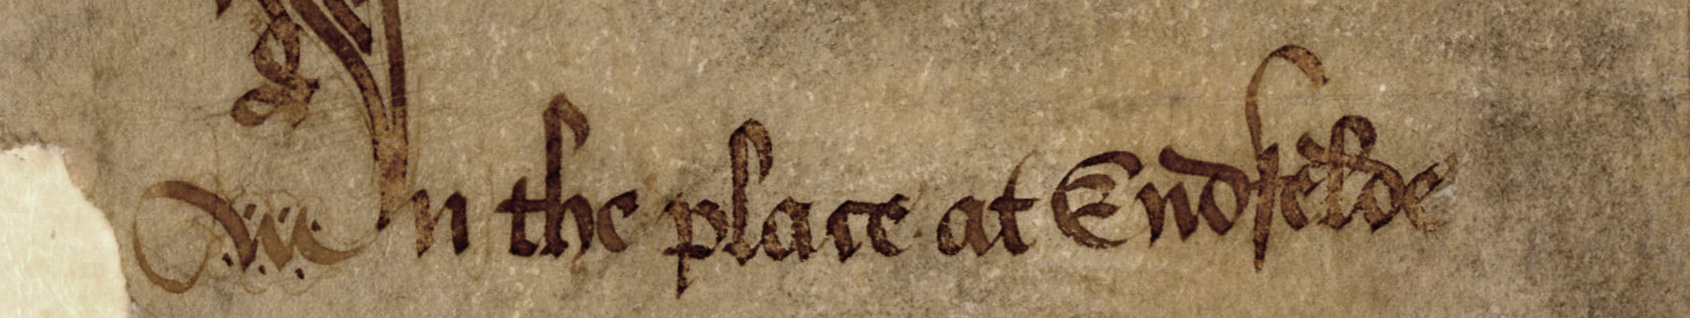 In the place at Endfelde